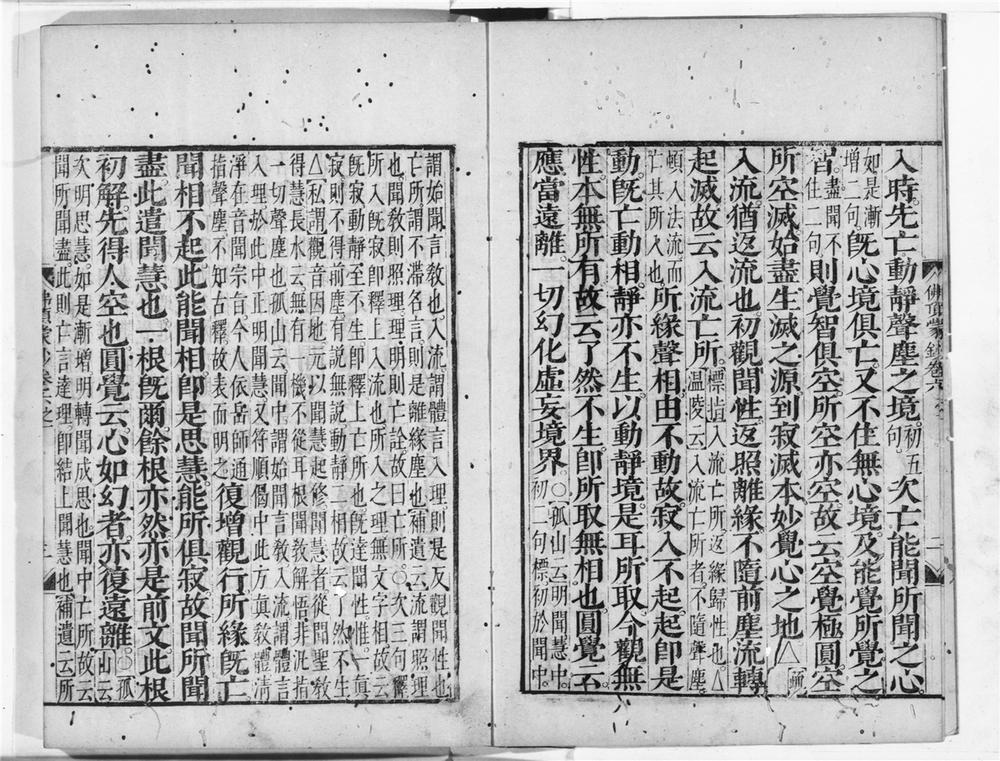 入時。先亡動靜聲塵之境。初五句。次亡能聞所聞之心。
如是漸增。句。旣心境俱亡。又不住無心境及能覺所覺之
智。盡聞不住二句則覺智俱空所空亦空故云空覺極圓空
所空滅始盡生滅之源到寂滅本妙覺心之地△
入流猶返流也初觀聞性返照離緣不隨前塵流轉
起滅故云入流亡所。標指入流亡所返緣歸性也。△溫陵云入流亡所者不隨聲塵
頓入法流而亡其所入也所緣聲相由不動故寂入不起起即是
動。旣亡動相。靜亦不生。以動靜境。是耳所取。今觀無
性。本無所有。故云了然不生。即所取無相也。圓覺云
應當遠離。一切幻化虛妄境界。○孤山云明聞慧中。初二句標初於聞中。
佛頂蒙鈔卷六之一
二
謂始聞言教也。入流謂體言入理則是反觀聞性也
亡所謂不滯名言。則是離緣塵也。補遺云。流謂照理
也。聞教則照理。理明則亡詮。故曰亡所。○次三句。釋
所入旣寂卽釋上入流也。所入之理無文字相。故云
旣寂動靜至不生卽釋上亡所也。旣達聞性。惟一眞
寂則不得前塵有說無說動靜二相故云了然不生
△私謂觀音因地元以聞慧起修聞慧者從聞聖教
得慧。長水云無有一機不從耳根聞教解悟非汎指
一切聲塵也。孤山云。聞中謂始聞言教。入流謂體言
入理。於此中正明聞慧。又符順偈中。此方眞教體。淸
淨在音聞宗旨。今人依岳師通
指聲塵。不知古釋故表而明之。復增觀行所緣旣亡
聞相不起此能聞相。卽是思慧。能所俱寂。故聞所聞
盡。此遣聞慧也。一根旣爾餘根亦然。亦是前文此根
初解。先得人空也。圓覺云。心如幻者。亦復遠離。孤山云
次明思慧。如是漸增明轉聞成思也。聞中亡所故云
聞所聞盡。此則亡言達理。卽結上聞慧也。補遺云。所
佛頂蒙鈔卷六之一
三